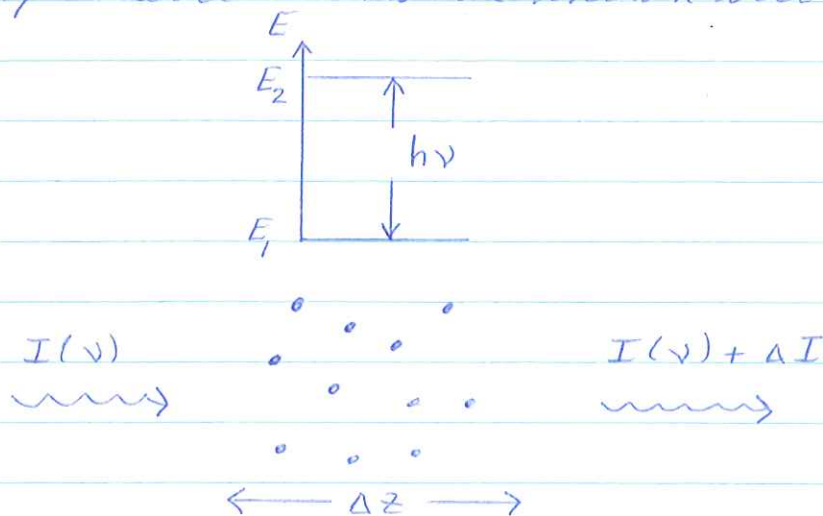 E
E₂
hν
E₁
I(ν) I(ν) + ΔI
Δz